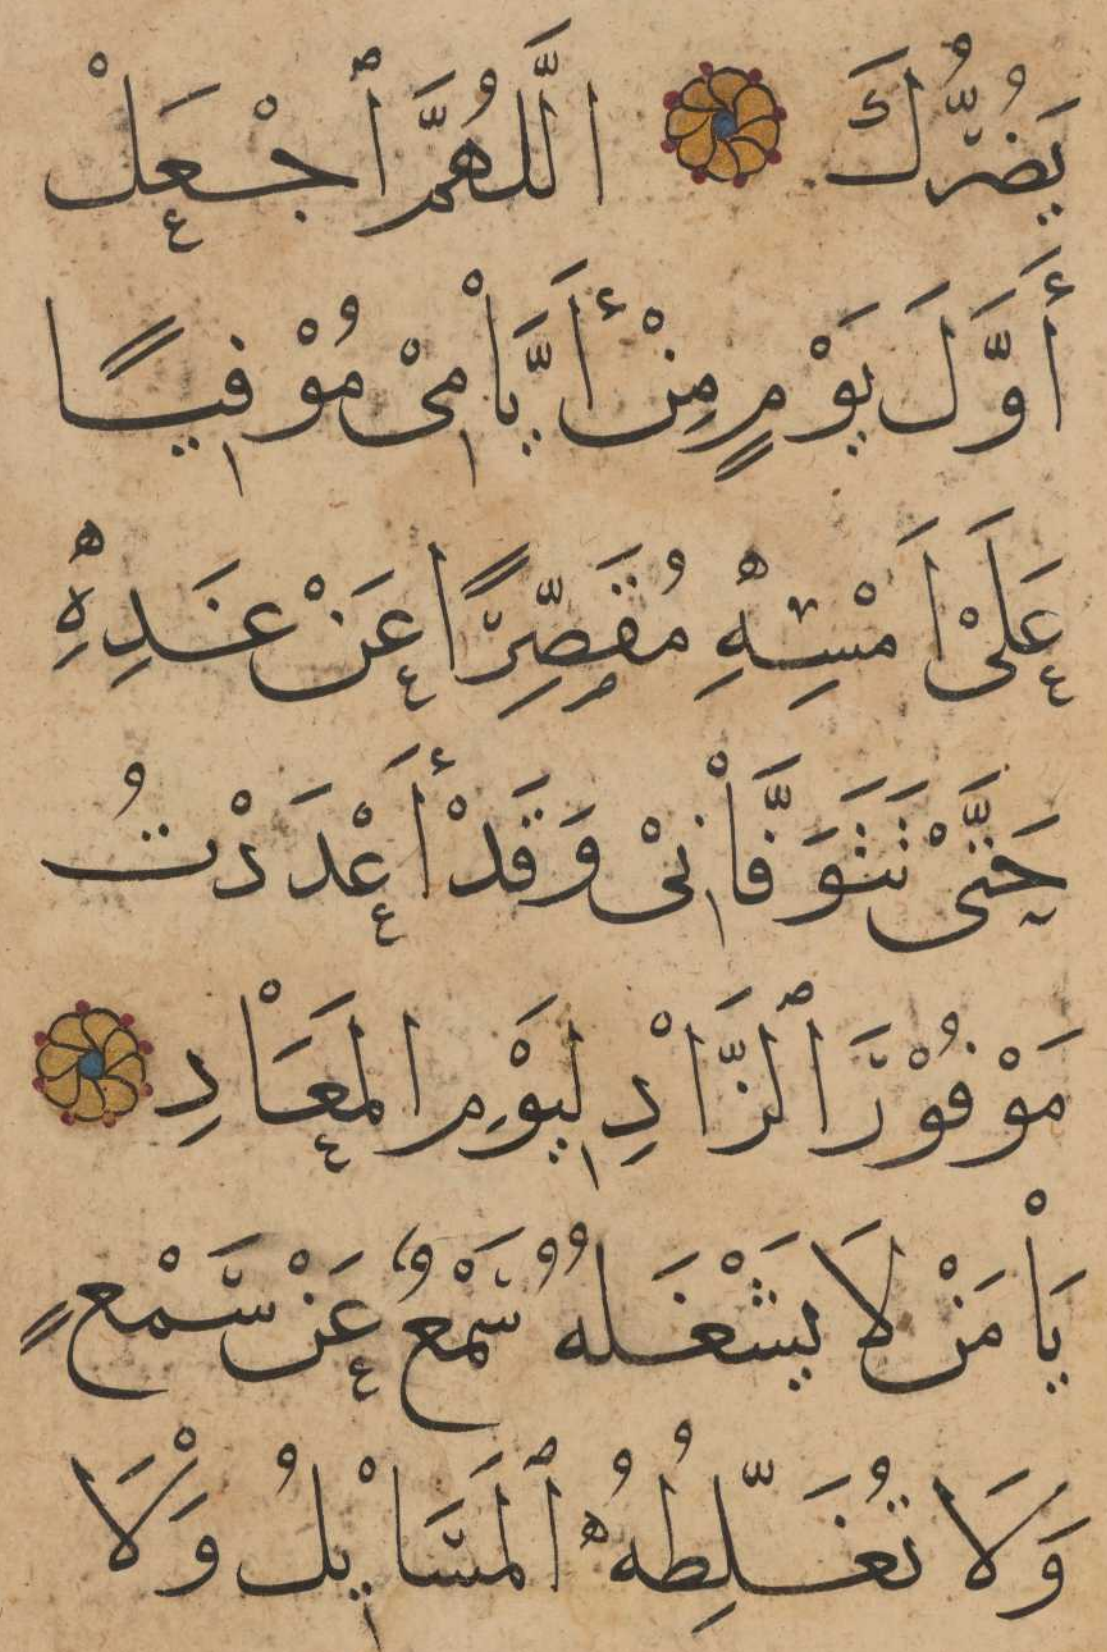 يَضُرُّكَ اللَّهُمَّ ٱجْعَلْ
أَوَّلَ يَوْمٍ مِنْ أَيَّاْمِىْ مُوْفِيًا
عَلَىْ اَمْسِهِ مُقَصِّرًا عَنْ غَدِهِ
حَتَّىْ تَتَوَفَّاْنِىْ وَقَدْ أَعْدَدْتُ
مَوْفُوْرَ ٱلزَّاْدِ لِيَوْمِ المَعَاْدِ
يَاْ مَنْ لَا يَشْغَلُهُ سَمْعٌ عَنْ سَمْعٍ
وَلَا تُغَلِّطُهُ ٱلمَسَاْيِلُ وَلَاْ